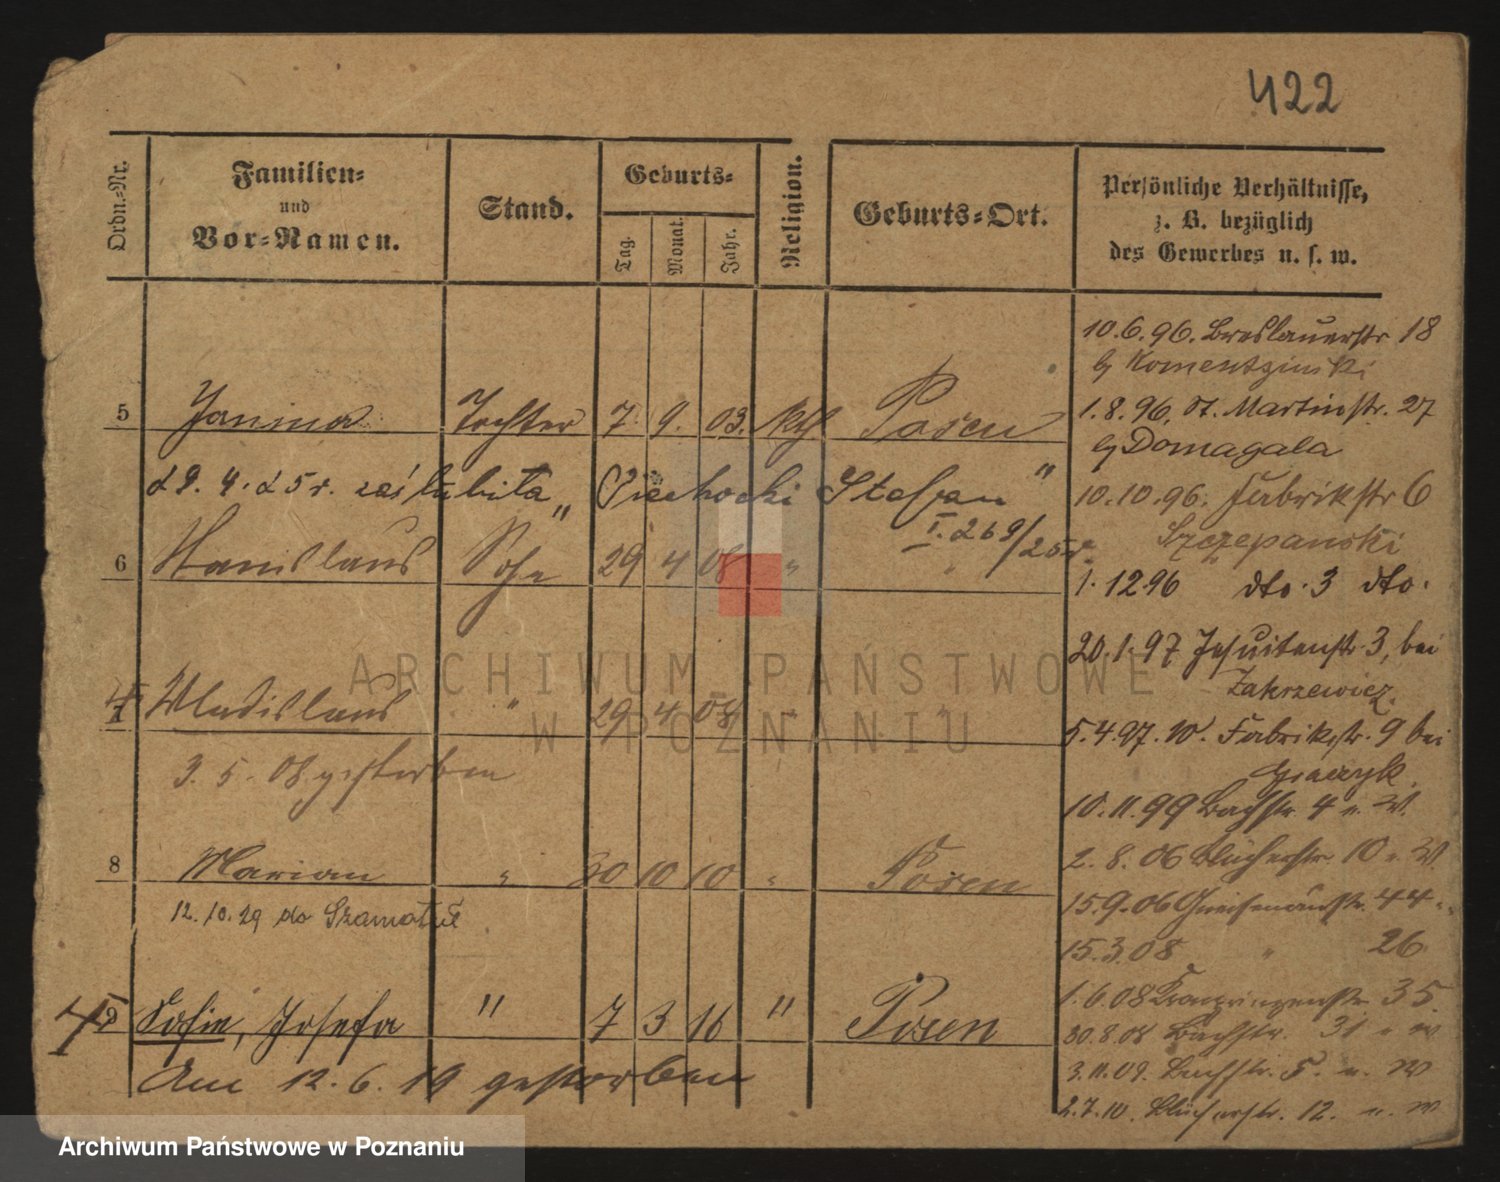 422
Ordn.-Nr.
Familien-
und
Vor-Namen.
Stand.
Geburts-
Tag.
Monat.
Jahr.
Religion.
Geburts-Ort.
Persönliche Verhältnisse,
z. B. bezüglich
des Gewerbes u. s. w.
5 Janina Tochter 7. 9. 03. kth Posen
d 9. 4. 25 r. zaślubiła „Piechocki Stefan"
I. 269/25r.
6 Stanislaus Sohn 29 4 08 " "
7 Wladislaus " 29 4 08 " "
3. 5. 08 gestorben
8 Marian " 30 10 10 " Posen
12. 10. 29 do Szamotuł
9 Sofie, Josefa " 7 3 16 " Posen
Am 12. 6. 19 gestorben
10.6.96. Breslauerstr 18
b/ Komentzinski
1.8.96. St. Martinstr. 27
b/ Domagala
10.10.96. Fabrikstr 6
Szczepanski
1.12 96 dto. 3 dto.
20.1.97 Jesuitenstr. 3, bei
Zakrzewicz.
5.4.97. W. Fabrikstr. 9 bei
10.11.99 Bachstr. 4 u. W.
2.8.06 Blücherstr. 10 u. W.
15.9.06 Gneisenaustr. 44 "
15.3.08 " 26
1.6.08 Kronprinzenstr. 35.
30.8.08 Bachstr. 31 u W
3.11.09. Bachstr. 5. u. W
2.7.10. Blücherstr. 12. u. W
ARCHIWUM PAŃSTWOWE
W POZNANIU
Archiwum Państwowe w Poznaniu